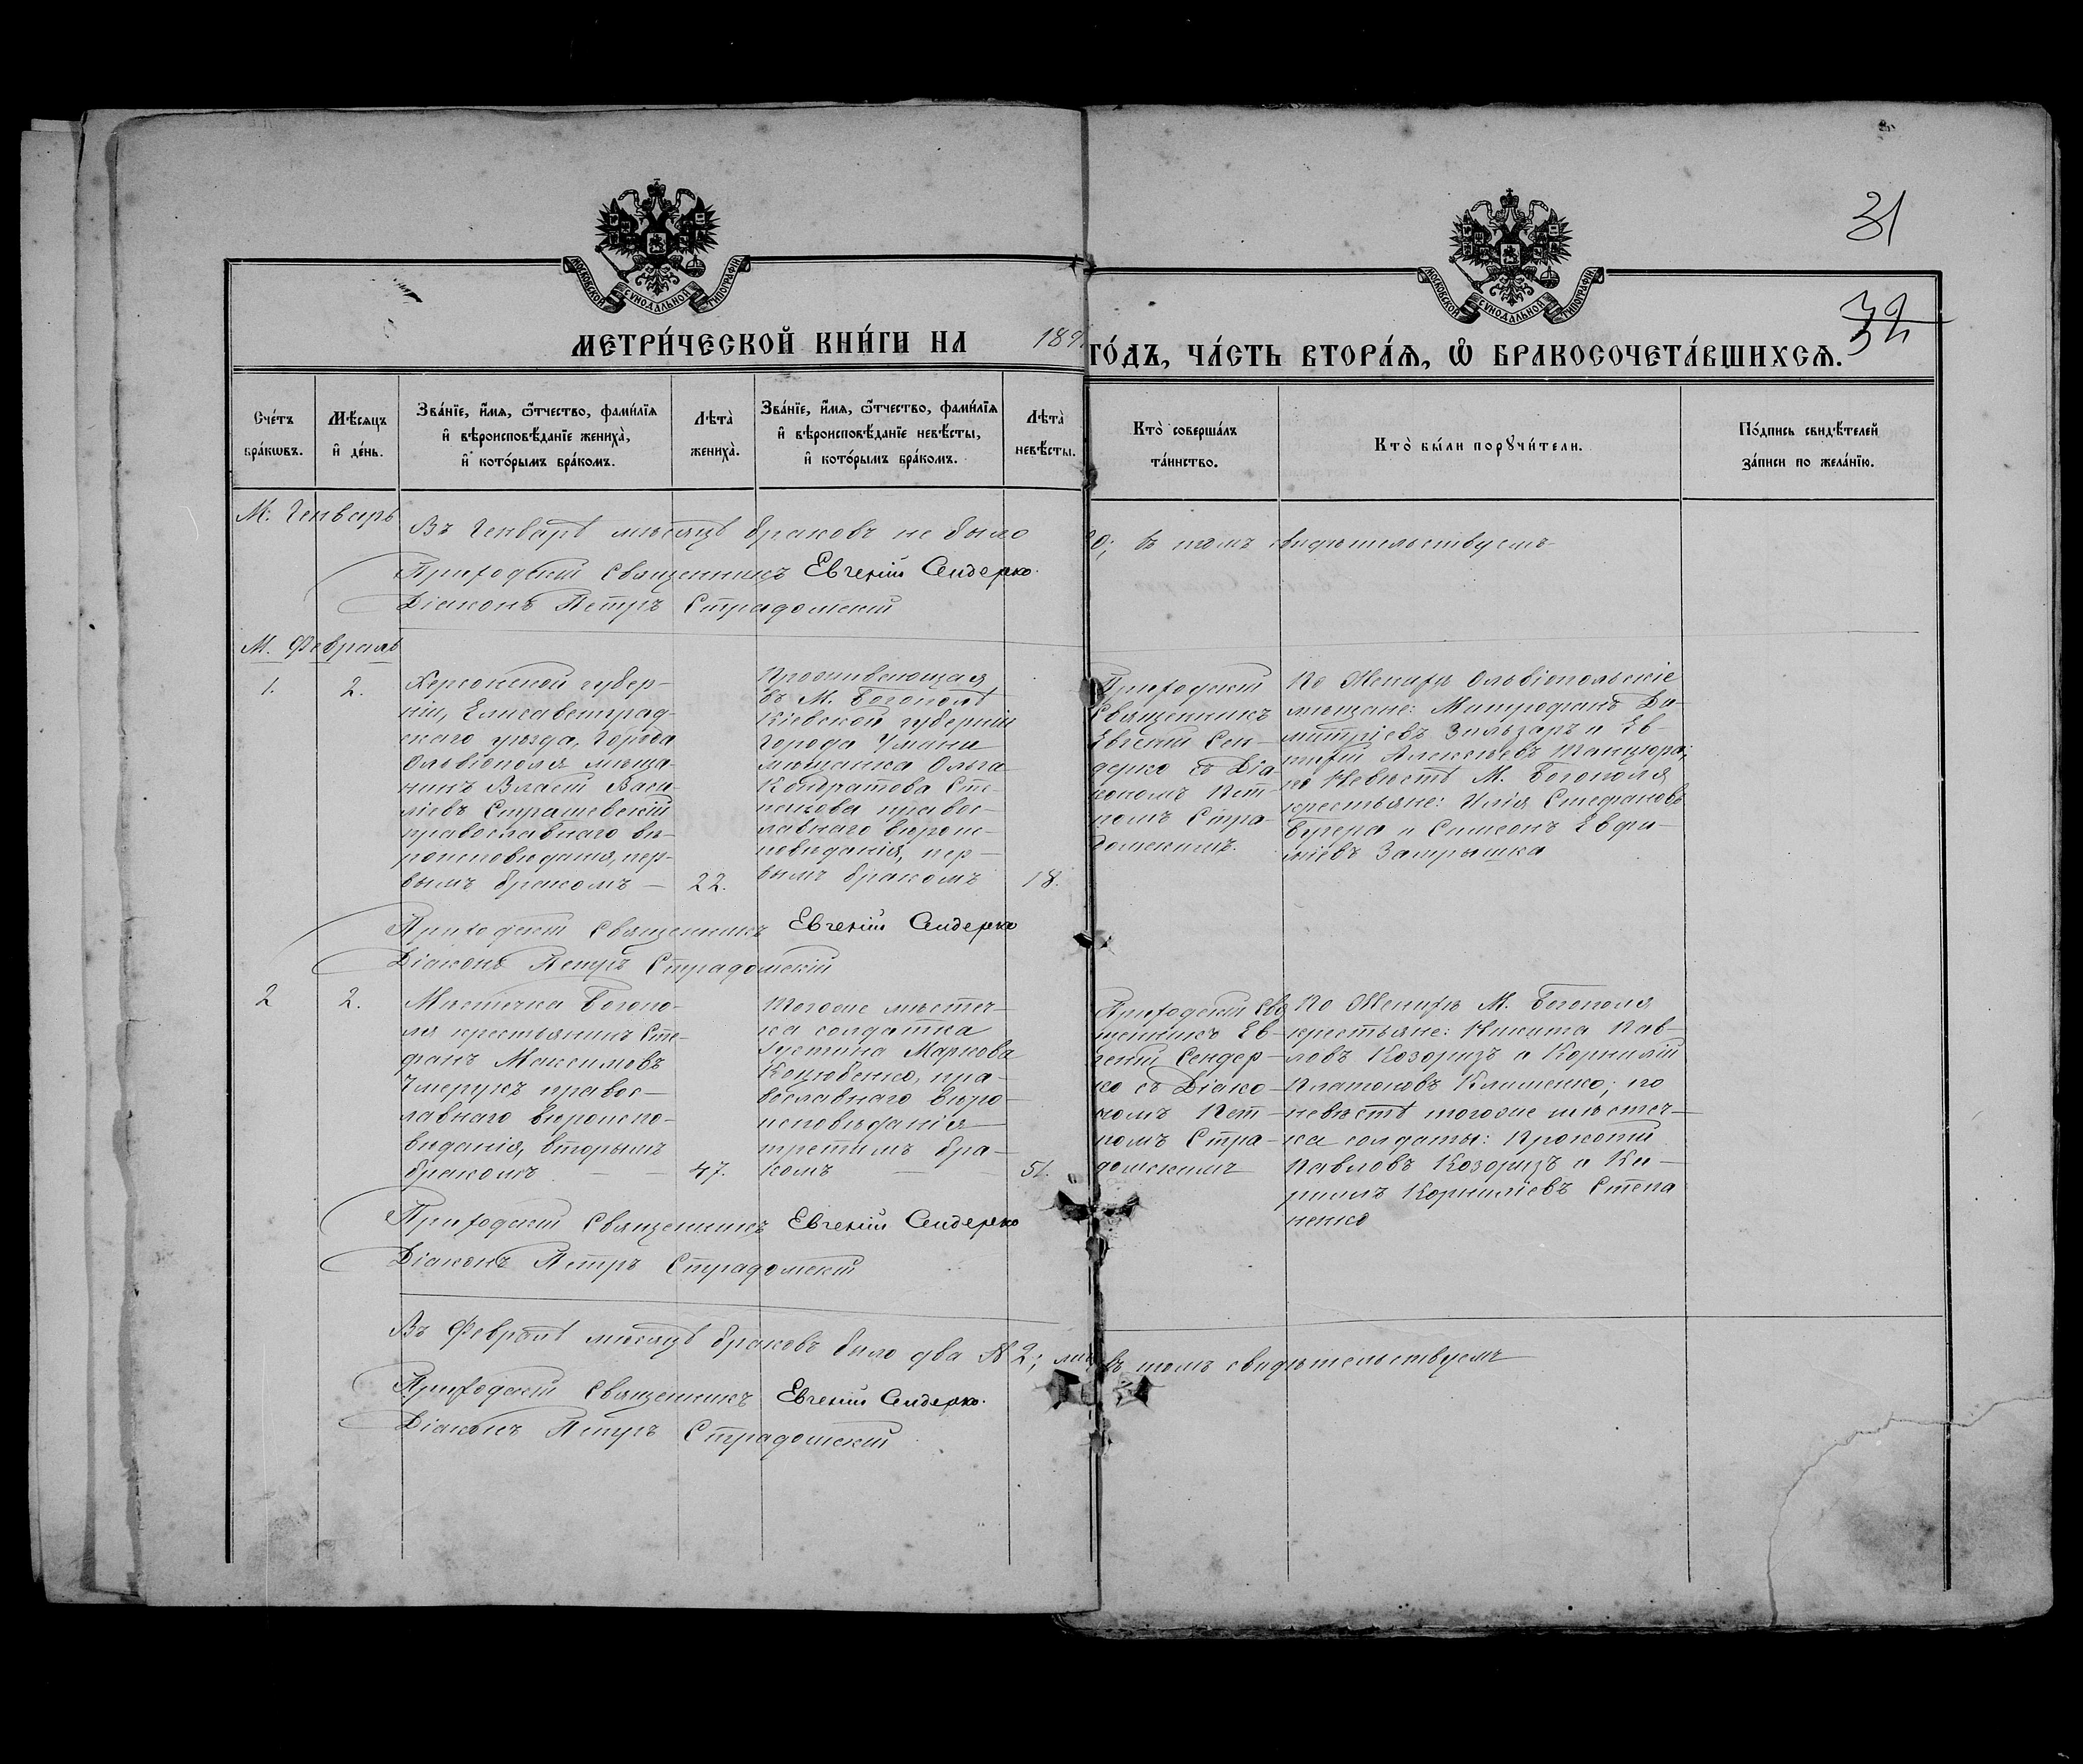 31
32
МОСКОВСКОЙ СѴНОДАЛЬНОЙ ТИПОГРАФІИ
МОСКОВСКОЙ СѴНОДАЛЬНОЙ ТИПОГРАФІИ
МЕТРИ́ЧЕСКОЙ КНИ́ГИ НА 189
ГО́ДЪ, ЧА́СТЬ ВТОРА́Я, Ѡ БРАКОСОЧЕТА́ВШИХСЯ.
Сче́тъ
бра́кωвъ.
Мѣ́сяцъ
и҆ де́нь.
Зва́нїе, и҆́мя, ѻ҆́тчество, фами́лїя
и҆ вѣроисповѣ́данїе жениха̀,
и҆ кото́рымъ бра́комъ.
Лѣта̀
жениха̀.
Зва́нїе, и҆́мя, ѻ҆́тчество, фами́лїя
и҆ вѣроисповѣ́данїе невѣ́сты,
и҆ кото́рымъ бра́комъ.
Лѣта̀
невѣ́сты.
Кто̀ соверша́лъ
та́инство.
Кто̀ бы́ли порꙋчи́тели.
По́дпись свидѣ́телей
за́писи по жела́нїю.
М: Генварь
Въ Генварѣ мѣсяцѣ браковъ не было
въ томъ свидѣтельствуемъ
Приходскій Священникъ Евгеній Сендерко.
Діаконъ Петръ Страдомскій
М. Февраль
1.
2.
Херсонской губер-
ніи, Елисаветград-
скаго уѣзда, Города
Ольвіополя мѣща-
нинъ Власій Васи-
ліевъ Страшевскій
православнаго вѣ-
роисповѣданія, пер-
вымъ бракомъ —
22.
Проживающая
въ М. Богополѣ
Кіевской губерніи
Города Умани
мѣщанка Ольга
Кондратова Сте-
панова правос-
лавнаго вѣроис-
повѣданія, пер-
вымъ бракомъ
18.
Приходскій
Священникъ
Евгеній Сен-
дерко съ Діа-
кономъ Пет-
ромъ Стра-
домскимъ.
По Женихѣ Ольвіопольскіе
мѣщане: Митрофанъ Ди-
митріевъ и Ев-
Алексѣевъ
по Невѣстѣ М. Богополя
крестьяне: Илія Стефановъ
Бугера и Симеонъ Евфи-
міевъ
Приходскій Священникъ Евгеній Сендерко
Діаконъ Петръ Страдомскій
2
2.
Мѣстечка Богопо-
ля крестьянинъ Сте-
фанъ Максимовъ
Чмерукъ правос-
лавнаго вѣроиспо-
вѣданія, вторымъ
бракомъ — —
47.
Тогоже мѣстеч-
ка солдатка
Іустина Маркова
Коцюбенко, пра-
вославнаго вѣро-
исповѣданія
третьимъ бра-
комъ —
51.
Приходскій Свя-
щенникъ Ев-
геній Сендер-
ко съ Діако-
номъ Пет-
ромъ Стра-
домскимъ
По Женихѣ М. Богополя
крестьяне: Никита Пав-
ловъ Козоризъ и Корнилій
Платоновъ Клименко; по
невѣстѣ тогоже мѣстеч-
ка солдаты: Прокопій
Павловъ Козоризъ и Ки-
риллъ Корниліевъ Степа
ненко
Приходскій Священникъ Евгеній Сендерко
Діаконъ Петръ Страдомскій
Въ Февралѣ мѣсяцѣ браковъ было два № 2; въ томъ свидѣтельствуемъ
Приходскій Священникъ Евгеній Сендерко.
Діаконъ Петръ Страдомскій